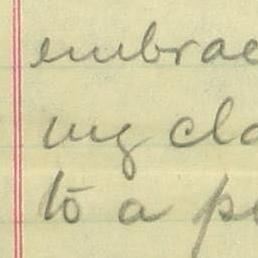 embrac
my cla
to a p